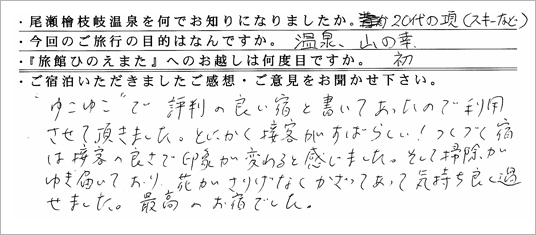 ・尾瀬檜枝岐温泉を何でお知りになりましたか。 20代の頃(スキーなど)
・今回のご旅行の目的はなんですか。 温泉、山の幸
・『旅館ひのえまた』へのお越しは何度目ですか。 初
・ご宿泊いただきましたご感想・ご意見をお聞かせ下さい。
"ゆこゆこ"で評判の良い宿と書いてあったので利用
させて頂きました。とにかく接客がすばらしい!つくづく宿
は接客の良さで印象が変わると感じました。そして掃除が
ゆき届いており、花がさりげなくかざってあって気持ち良く過
せました。最高のお宿でした。